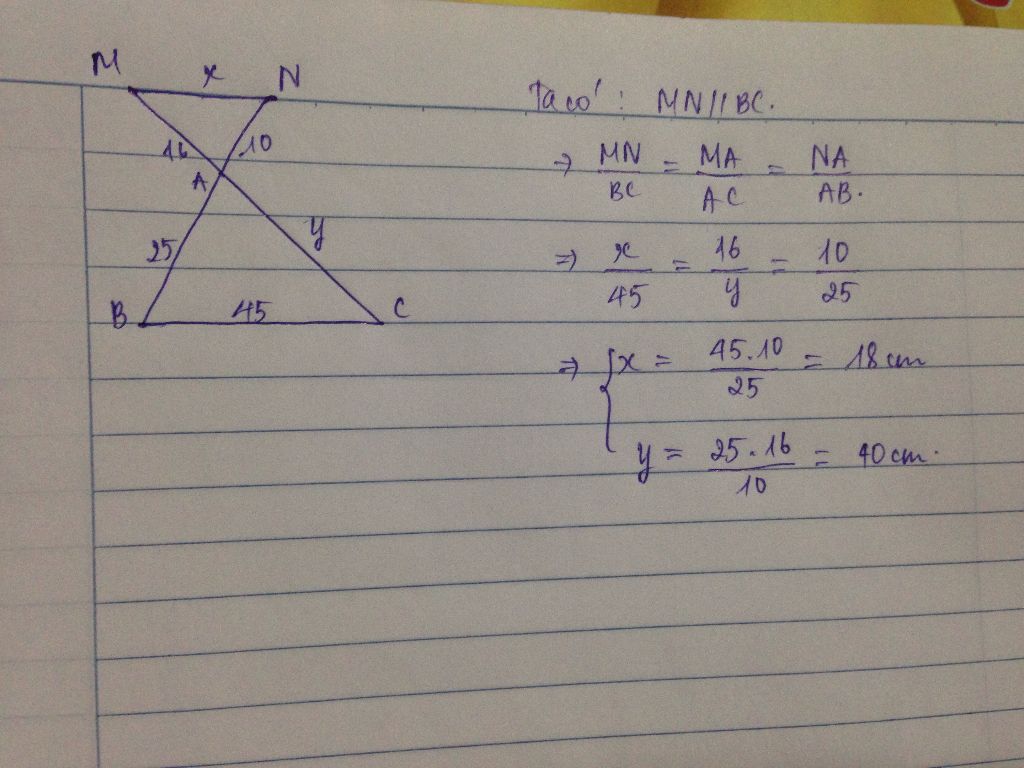 M x N
16 10
A
25 y
B 45 C
Ta có: MN//BC.
=> MN/BC = MA/AC = NA/AB.
=> x/45 = 16/y = 10/25
=> { x = 45.10/25 = 18cm
y = 25.16/10 = 40cm.